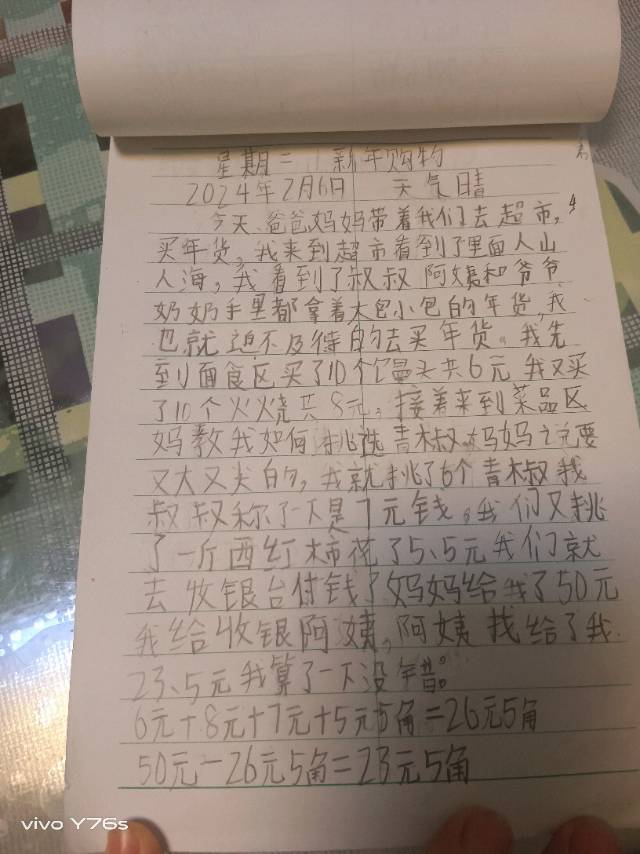 星期二 新年购物
2024年2月6日 天气晴
今天爸爸妈妈带着我们去超市,
买年货,我来到超市看到了里面人山
人海,我看到了叔叔阿姨和爷爷
奶奶手里都拿着大包小包的年货,我
也就迫不及待的去买年货。我先
到面食区买了10个馒头共6元我又买
了10个火烧共8元,接着来到菜品区
妈教我如何挑选青椒妈妈说要
又大又尖的,我就挑了6个青椒找
叔叔称了一下是7元钱。我们又挑
了一斤西红柿花了5、5元我们就
去收银台付钱了妈妈给我了50元
我给收银阿姨,阿姨找给了我
23、5元我算了一下没错。
6元+8元+7元+5元5角=26元5角
50元-26元5角=23元5角
vivo Y76s